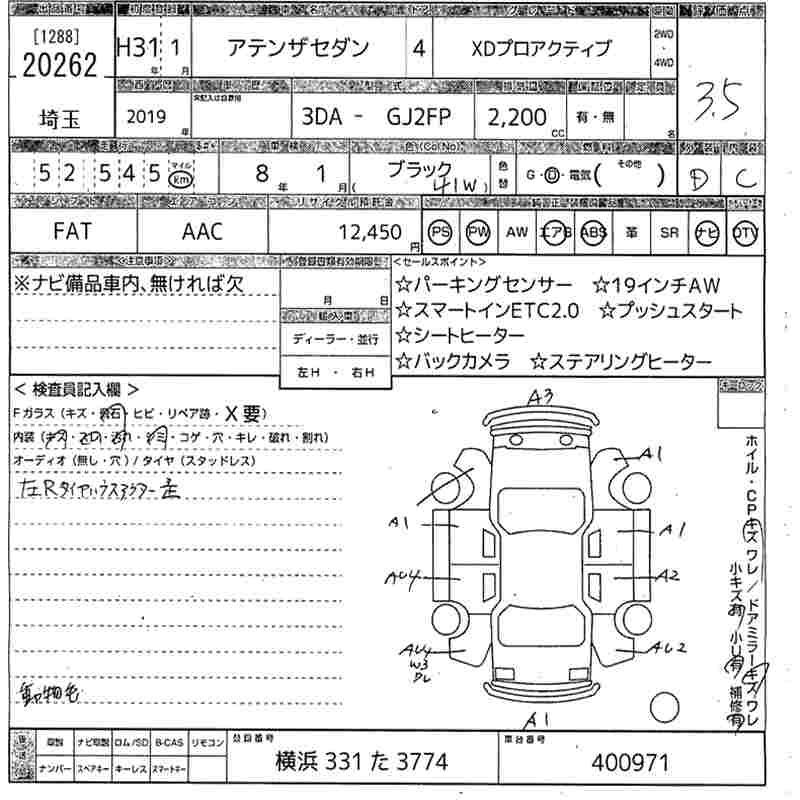 [1288]
20262
埼玉
H31 1
年 月
アテンザセダン
4
XDプロアクティブ
2WD
・
4WD
3.5
2019
年
3DA - GJ2FP
2,200
CC
有・無
名
52 545
マイル
km
8 年 1 月
色(Co/No)
ブラック
( 41W )
色替
G・D・電気( その他 )
D
C
FAT
AAC
リサイクル預託金
12,450 円
PS
PW
AW
エアB
ABS
革
SR
ナビ
DTV
<注意事項>
※ナビ備品車内、無ければ欠
登録書類有効期限
月 日
輸入車
ディーラー・並行
左H ・ 右H
<セールスポイント>
☆パーキングセンサー ☆19インチAW
☆スマートインETC2.0 ☆プッシュスタート
☆シートヒーター
☆バックカメラ ☆ステアリングヒーター
< 検査員記入欄 >
Fガラス(キズ・飛石・ヒビ・リペア跡・X要)
内装(キズ・ ・ ・ ・コゲ・穴・キレ・破れ・割れ)
オーディオ(無し・穴)/タイヤ(スタッドレス)
左Rタイヤハウス
動物毛
A3
A1
A1
A1
AU4
A2
AU4
W3
AU2
A1
ホイル・CPキズ ワレ/ドアミラーキズワレ
小キズ有 小U有 補修有
車検 ナビ取説 ロム/SD B-CAS リモコン
ナンバー スペアキー キーレス スマートキー
登録番号
横浜 331 た 3774
車台番号
400971